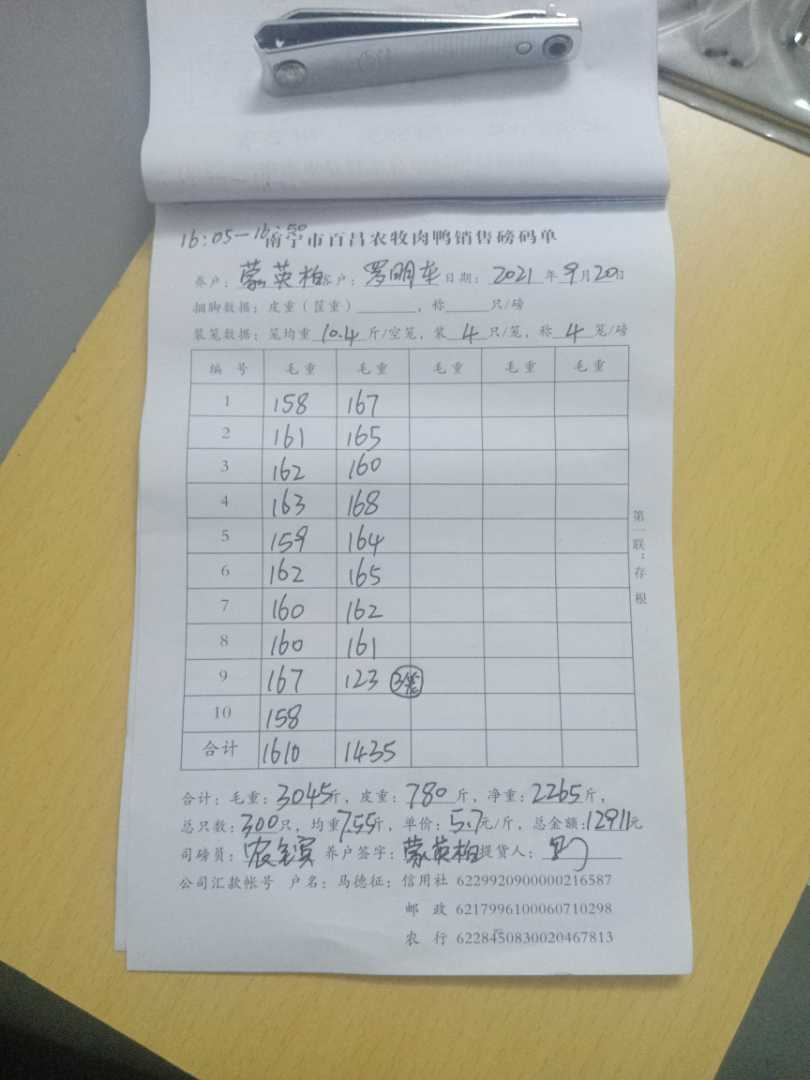 16:05-16:50
南宁市百昌农牧肉鸭销售磅码单
养户：蒙英柏 客户：罗明车 日期：2021年9月20日
捆脚数据：皮重（筐重）______，称______只/磅
装笼数据：笼均重 10.4 斤/空笼，装 4 只/笼，称 4 笼/磅
编号 毛重 毛重 毛重 毛重 毛重
1 158 167
2 161 165
3 162 160
4 163 168
5 159 164
6 162 165
7 160 162
8 160 161
9 167 123 3笼
10 158
合计 1610 1435
第一联：存根
合计：毛重：3045斤，皮重：780斤，净重：2265斤，
总只数：300只，均重7.55斤，单价：5.7元/斤，总金额：12911元
司磅员： 养户签字：蒙英柏 提货人：
公司汇款帐号 户名：马德征：信用社 6229920900000216587
邮政 6217996100060710298
农行 6228450830020467813